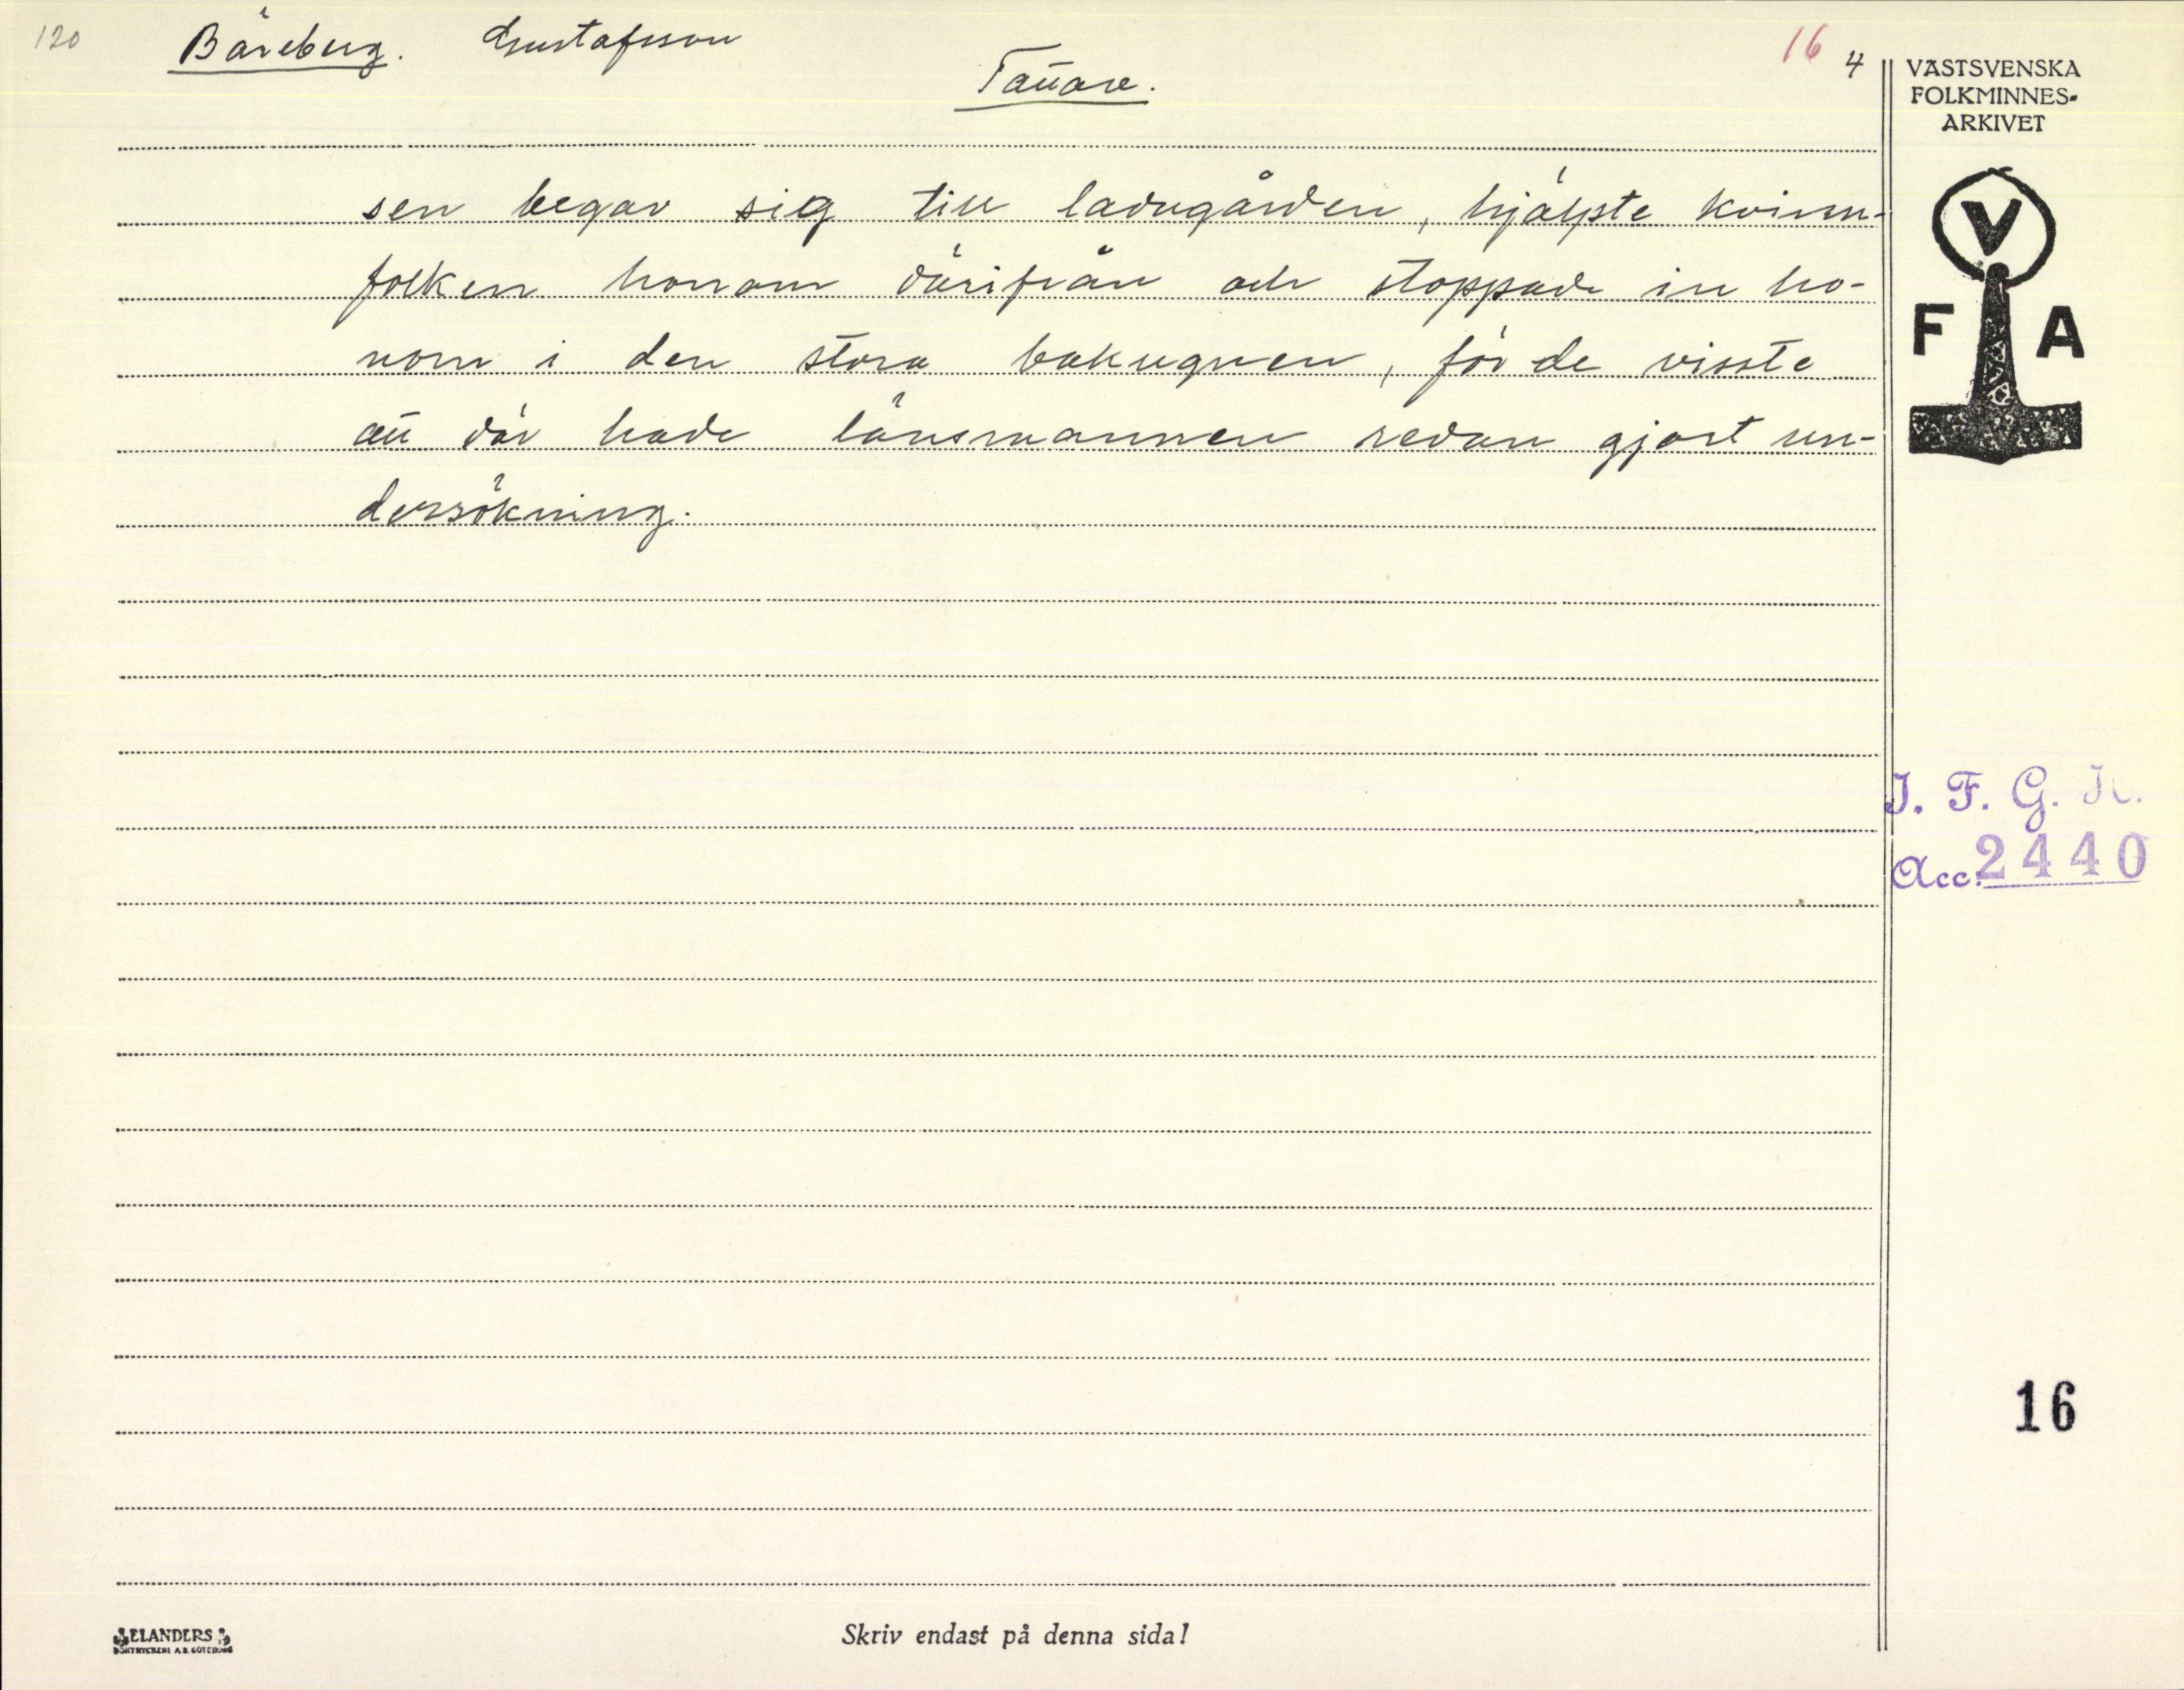 120
Bäreberg. Gustafsson
16 4
Tattare.
VÄSTSVENSKA
FOLKMINNES-
ARKIVET
V
F A
sen begav sig till ladugården, hjälpte kvinn-
folken honom därifrån och stoppade in ho-
nom i den stora bakugnen, för de visste
att där hade länsmannen redan gjort un-
dersökning.
I. F. G. H.
Acc. 2440
16
ELANDERS
BOKTRYCKERI A.B. GÖTEBORG
Skriv endast på denna sida!